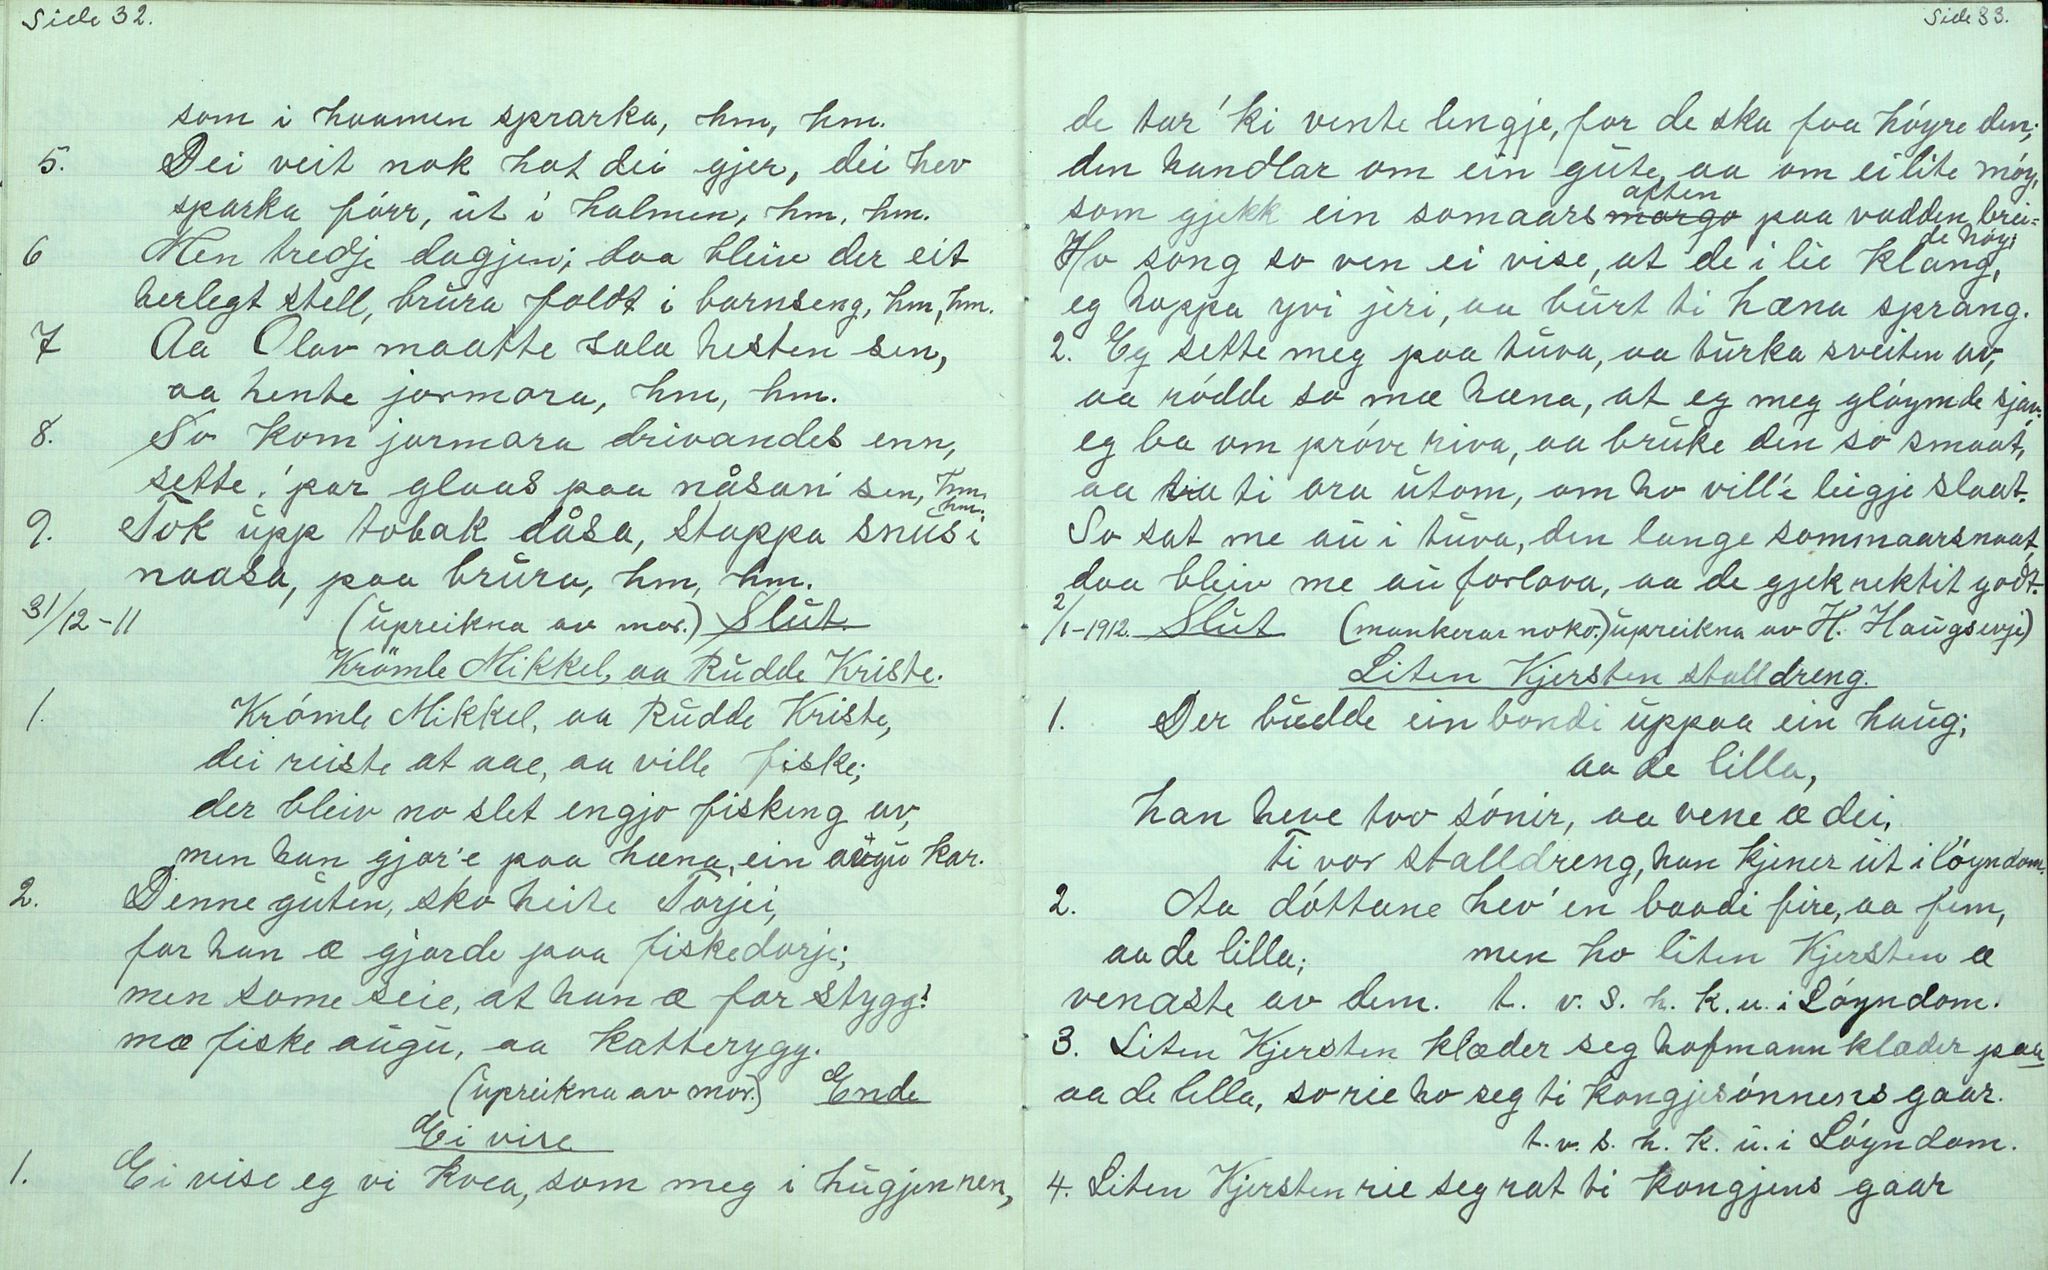 Side 32.
som i haamen sprarka, hm, hm.
5. Dei veit nok hot dei gjer, dei hev
sparka fórr, ût i halmen, hm, hm.
6 Men tredje dagjen; daa bleiv der eit
herlegt stell, brûra faldt i barnseng, hm, hm.
7 Aa Olav maatte sala hesten sin,
aa hente jormora, hm, hm.
8. So kom jormora drivandes enn,
sette par glaas paa nåsan sen, hm,
hm.
9. Tok ûpp tobak dåsa, stappa snûs i
naasa, paa brûra, hm, hm.
31/12-11 (ûpreikna av mor.) Slût.
Krómle Mikkel, aa Rûdde Kriste.
1. Krómle Mikkel, aa Rûdde Kriste,
dei reiste at aae, aa ville fiske;
der bleiv no slet engjo fisking av,
men han gjor'e paa hæna, ein aûgû kar.
2. Denne gûten, sko heite Torjei,
for han æ gjorde paa fiskedorje;
men some seie, at han æ for stygg!
mæ fiske aûgû, aa katterygg.
(ûpreikna av mor.) Ende
Ei vise
1. Ei vise eg vi kvea, som meg i hûgjen ren,
Side 33.
de tar 'ki vente lengje, for de ska faa hóyre den;
den handlar om ein gûte, aa om ei lite móy,
aften
som gjekk ein somaars morgo paa vadden brei=
de hóy;
Ho song so ven ei vise, at de i lie klang,
eg hoppa yvi jeri, aa bûrt ti hæna sprang.
2. Eg sette meg paa tûva, aa tûrka sveiten av,
aa ródde so mæ hæna, at eg meg glóymde sjav;
eg ba om próve riva, aa brûke den so smaat,
aa ti ara ûtom, om ho vill'e leigje slaat.
So sat me aû i tûva, den lange sommaarsnaat,
daa bleiv me aû forlova, aa de gjek rektit godt.
2/1-1912. Slût (mankerar noko.) ûpreikna av H. Haûgsevje)
Liten Kjersten stalldreng.
1. Der bûdde ein bondi ûppaa ein haûg;
aa de lilla,
han heve tvo sónir, aa vene æ dei,
Ti vor stalldreng, han kjener ût i lóyndom.
2. Aa dóttane hev' en baadi fire, aa fem,
aa de lilla; men ho liten Kjersten æ
venaste av dem. t. v. s. h. k. u. i Lóyndom.
3. Liten Kjersten klæder seg hofmann klæder paa
aa de lilla, so rie ho seg ti kongjesónnens gaar.
t. v. s. h. k. û. i Lóyndom.
4. Liten Kjersten rie seg rat ti kongjens gaar